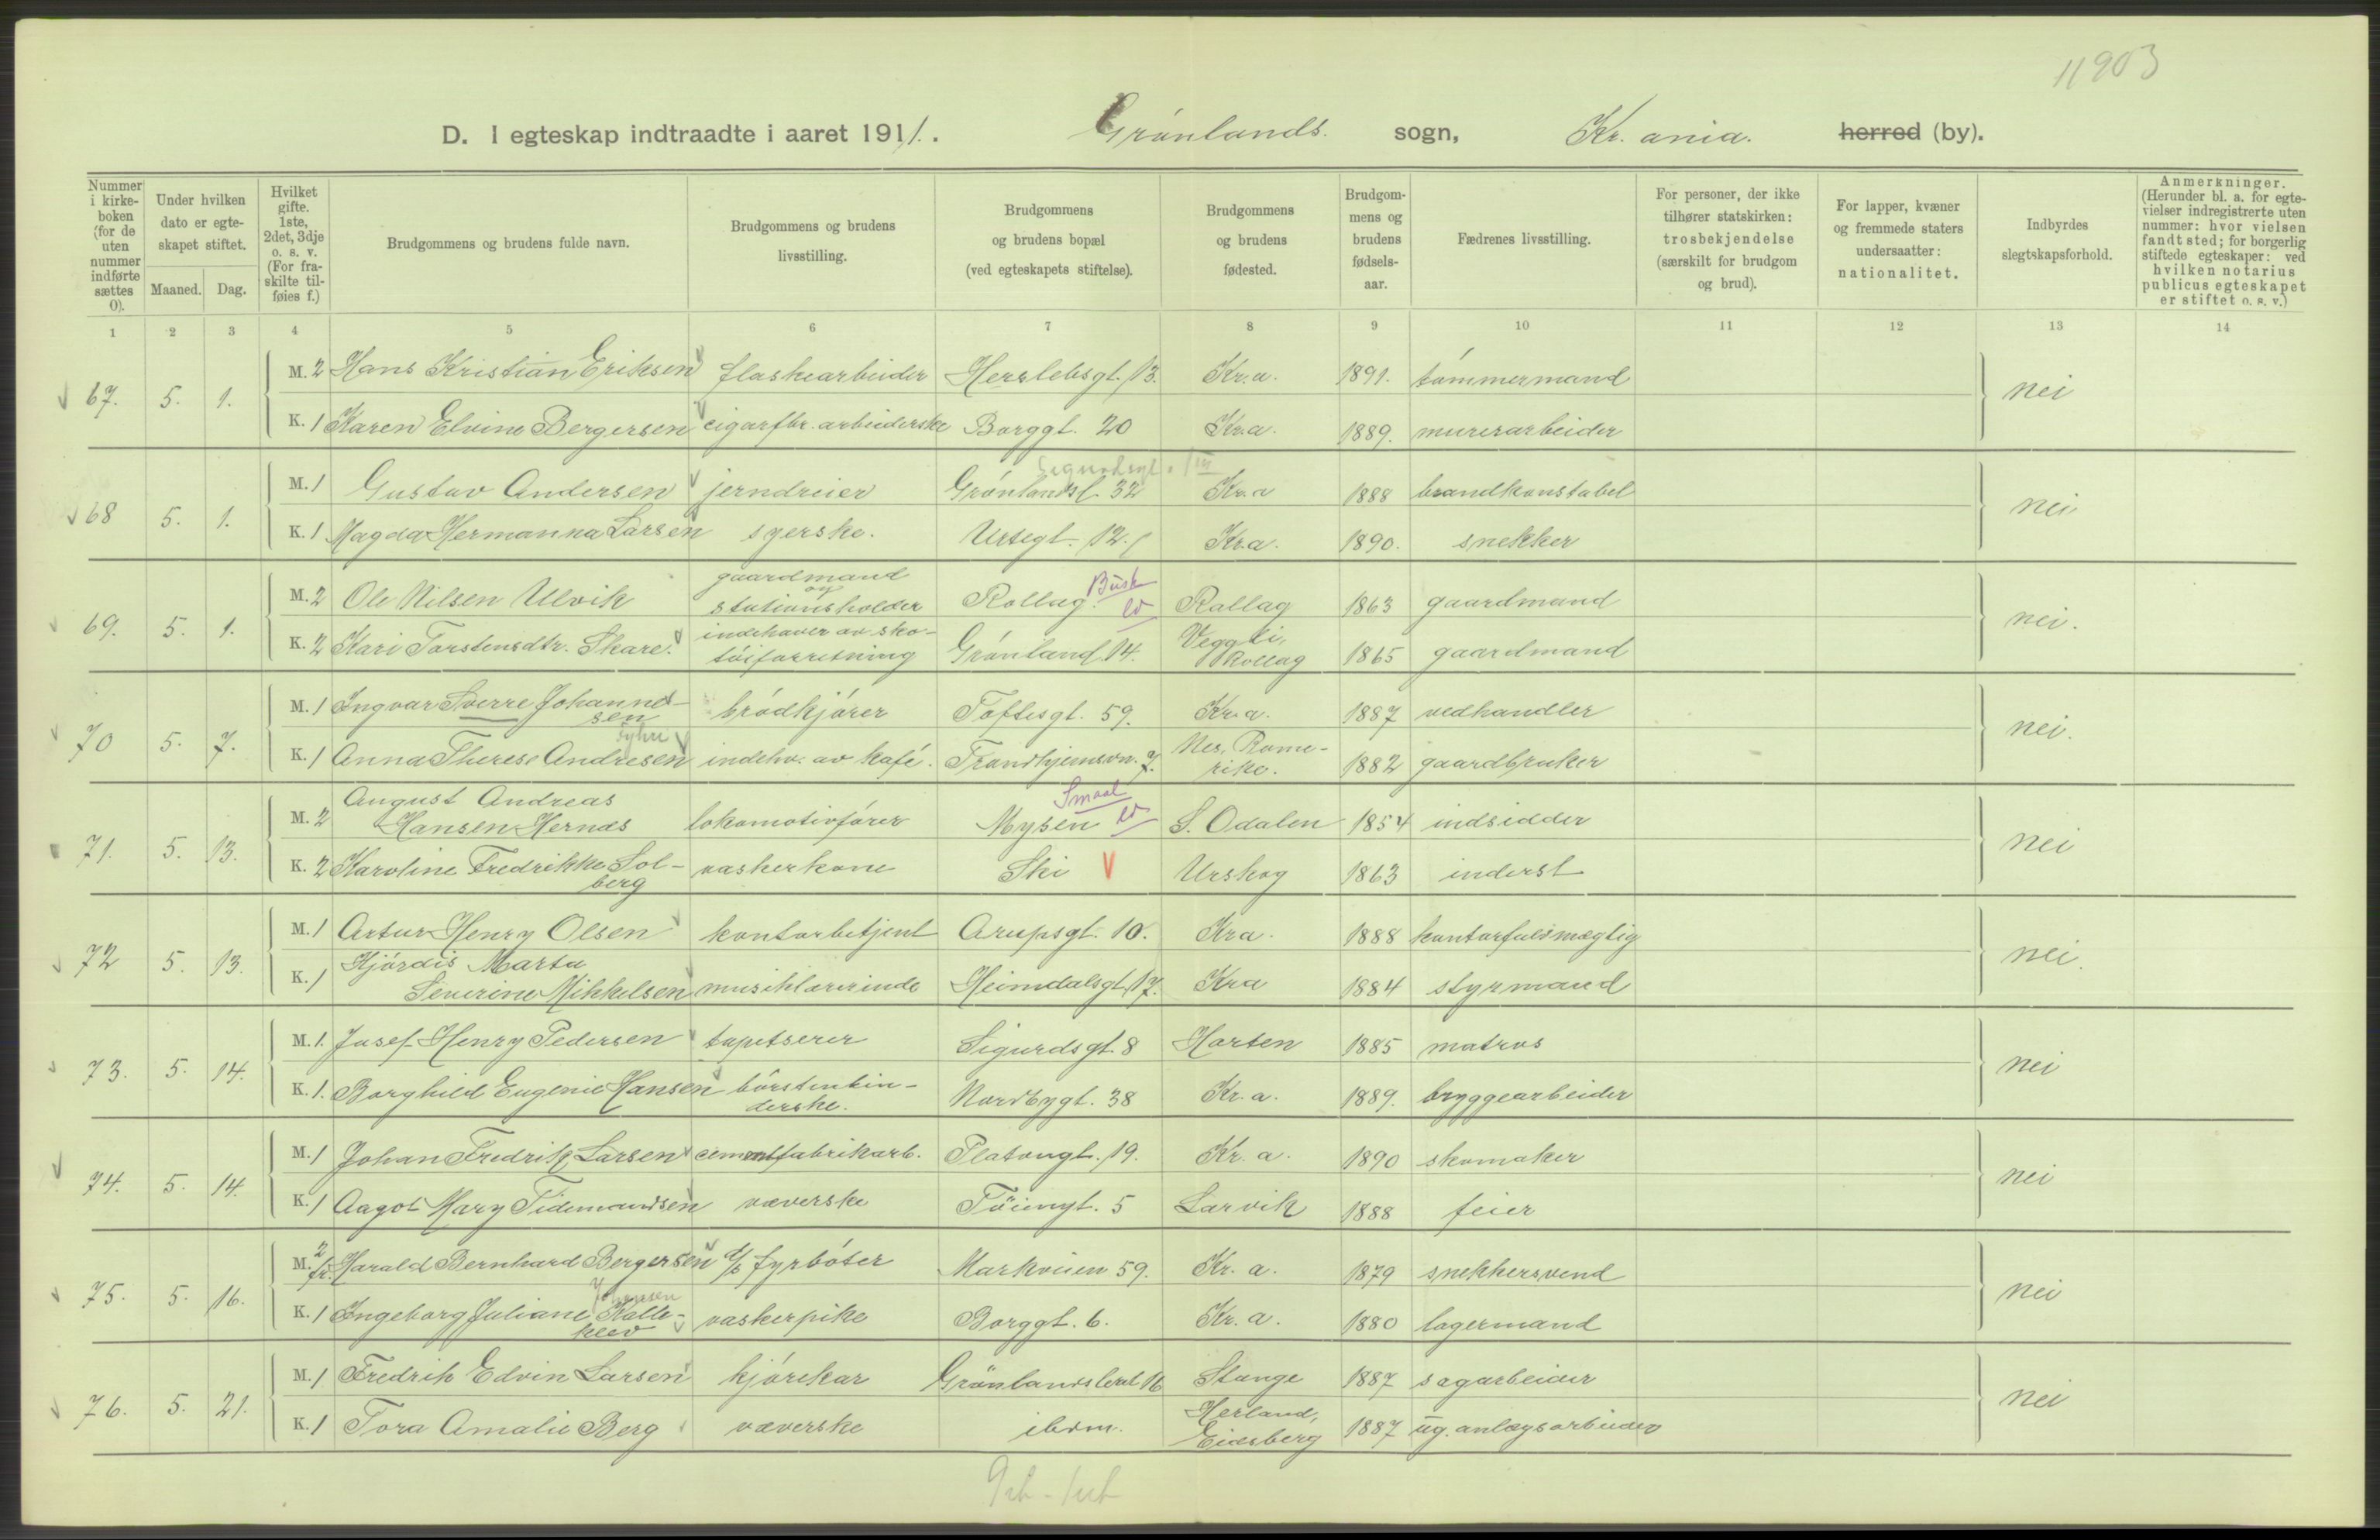 11903
D. I egteskap indtraadte i aaret 1911. Grønlands sogn, Kr. ania. herred (by).
Nummer i kirkeboken (for de uten nummer indførte sættes 0).
Under hvilken dato er egteskapet stiftet.
Maaned. Dag.
Hvilket gifte. 1ste, 2det, 3dje o. s. v. (For fraskilte tilføies f.)
Brudgommens og brudens fulde navn.
Brudgommens og brudens livsstilling.
Brudgommens og brudens bopæl (ved egteskapets stiftelse).
Brudgommens og brudens fødested.
Brudgommens og brudens fødselsaar.
Fædrenes livsstilling.
For personer, der ikke tilhører statskirken: trosbekjendelse (særskilt for brudgom og brud).
For lapper, kvæner og fremmede staters undersaatter: nationalitet.
Indbyrdes slegtskapsforhold.
Anmerkninger. (Herunder bl. a. for egtevielser indregistrerte uten nummer: hvor vielsen fandt sted; for borgerlig stiftede egteskaper: ved hvilken notarius publicus egteskapet er stiftet o. s. v.)
1 2 3 4 5 6 7 8 9 10 11 12 13 14
67. 5. 1. M. 2 Hans Kristian Eriksen flaskearbeider Herslebsgt. 13. Kr.a. 1891. tømmermand nei
K. 1 Karen Elvine Bergersen cigarfbr. arbeiderske Borggt. 20 Kr.a. 1889. murerarbeider
68 5. 1. M. 1 Gustav Andersen jerndreier Grønlandsl. 32 Kr.a 1888 brandkonstabel nei
K. 1 Magda Hermanna Larsen syerske. Urtegt. 12. Kr.a. 1890. snekker
69. 5. 1. M. 2 Ole Nilsen Ulvik gaardmand og stationsholder Rollag. Busk Rollag 1863 gaardmand nei.
K. 2 Kari Torstensdtr. Skare. indehaver av skotøiforretning Grønland 14. Veggli, Rollag 1865 gaardmand
70 5. 7. M. 1 Ingvar Sverre Johannessen brødkjører Toftesgt. 59. Kr.a. 1887 vedhandler nei.
K. 1 Anna Therese Andresen indehv. av kafé. Trondhjemsvn. 7. Nes, Romerike. 1882 gaardbruker
71. 5. 13. M. 2 August Andreas Hansen Hernes lokomotivfører Mysen Smaal S. Odalen 1854 indsidder nei
K. 2 Karoline Fredrikke Solberg vaskerkone Ski Urskog 1863 inderst
72 5. 13. M. 1 Artur Henry Olsen kontorbetjent Arupsgt. 10. Kra. 1888 kontorfuldmægtig nei.
K. 1 Hjørdis Marta Severine Mikkelsen musiklærerinde Heimdalsgt. 17. Kra 1884 styrmand
73. 5. 14. M. 1. Josef Henry Pedersen tapetserer Sigurdsgt. 8 Horten 1885 matros nei
K. 1. Borghild Eugenie Hansen børstenbinderske. Nordbygt. 38 Kr.a. 1889. bryggearbeider
74. 5. 14. M. 1 Johan Fredrik Larsen cementfabrikarb. Platougt. 19. Kr. a. 1890 skomaker nei
K. 1 Aagot Mary Tidemandsen væverske Tøiengt. 5 Larvik 1888 feier
75. 5. 16. M. 2 fr. Harald Bernhard Bergersen d/s fyrbøter Markveien 59. Kr. a. 1879 snekkersvend nei
K. 1 Ingeborg Juliane Kalleklev Johansen vaskerpike Borggt. 6. Kr. a. 1880 lagermand
76. 5. 21. M. 1 Fredrik Edvin Larsen kjørekar Grønlandsleret 16 Stange 1887 sagarbeider nei
K. 1 Tora Amalie Berg væverske ibidm. Herland, Eidsberg 1887 ug. anlægsarbeider